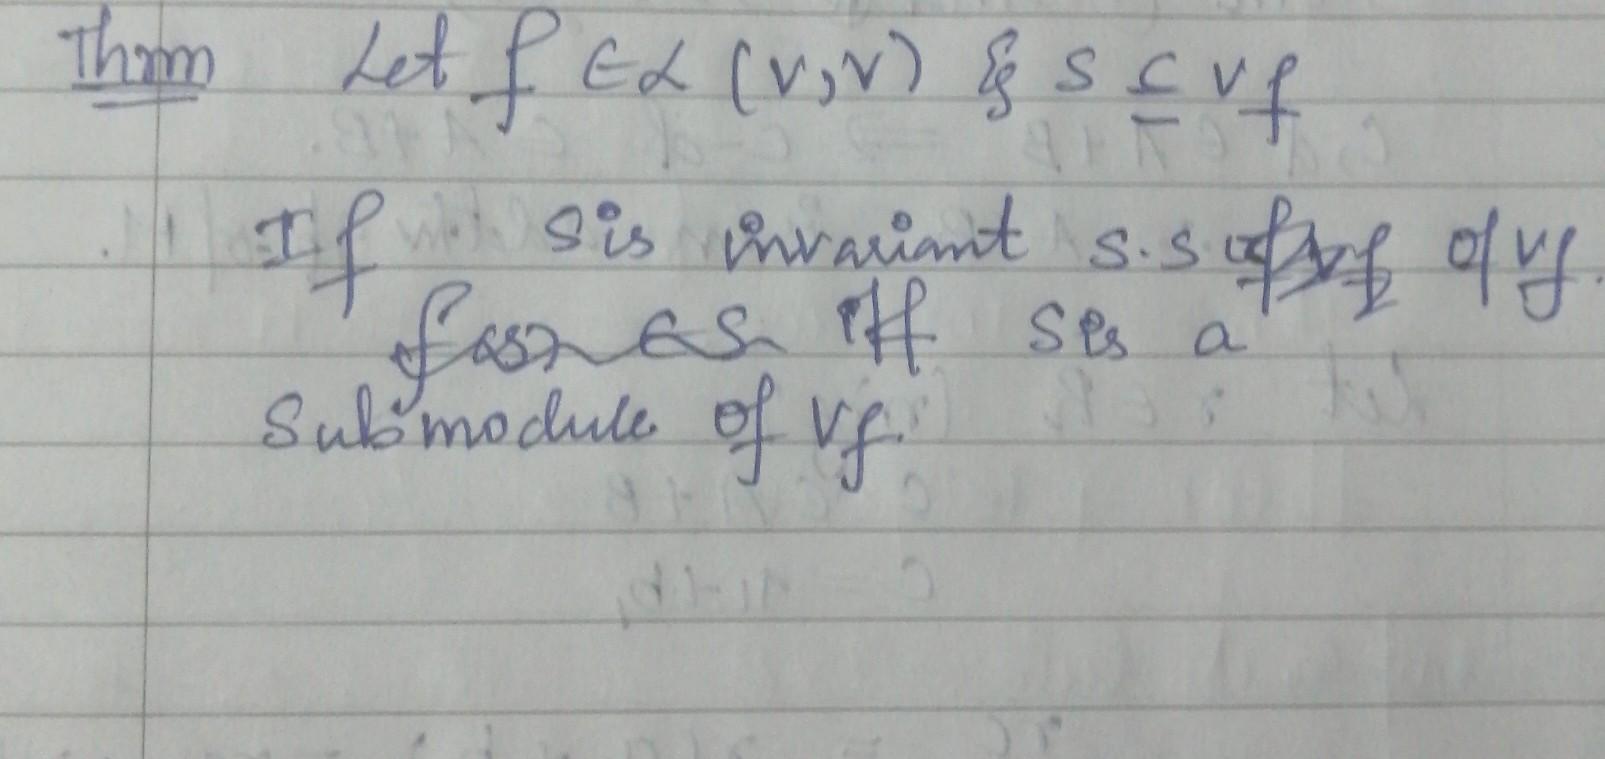 Thm Let f ∈ L (V,V) & S ⊆ Vf
If S is invariant s.s of Vf.
f(S) ∈ S iff S is a
Submodule of Vf.